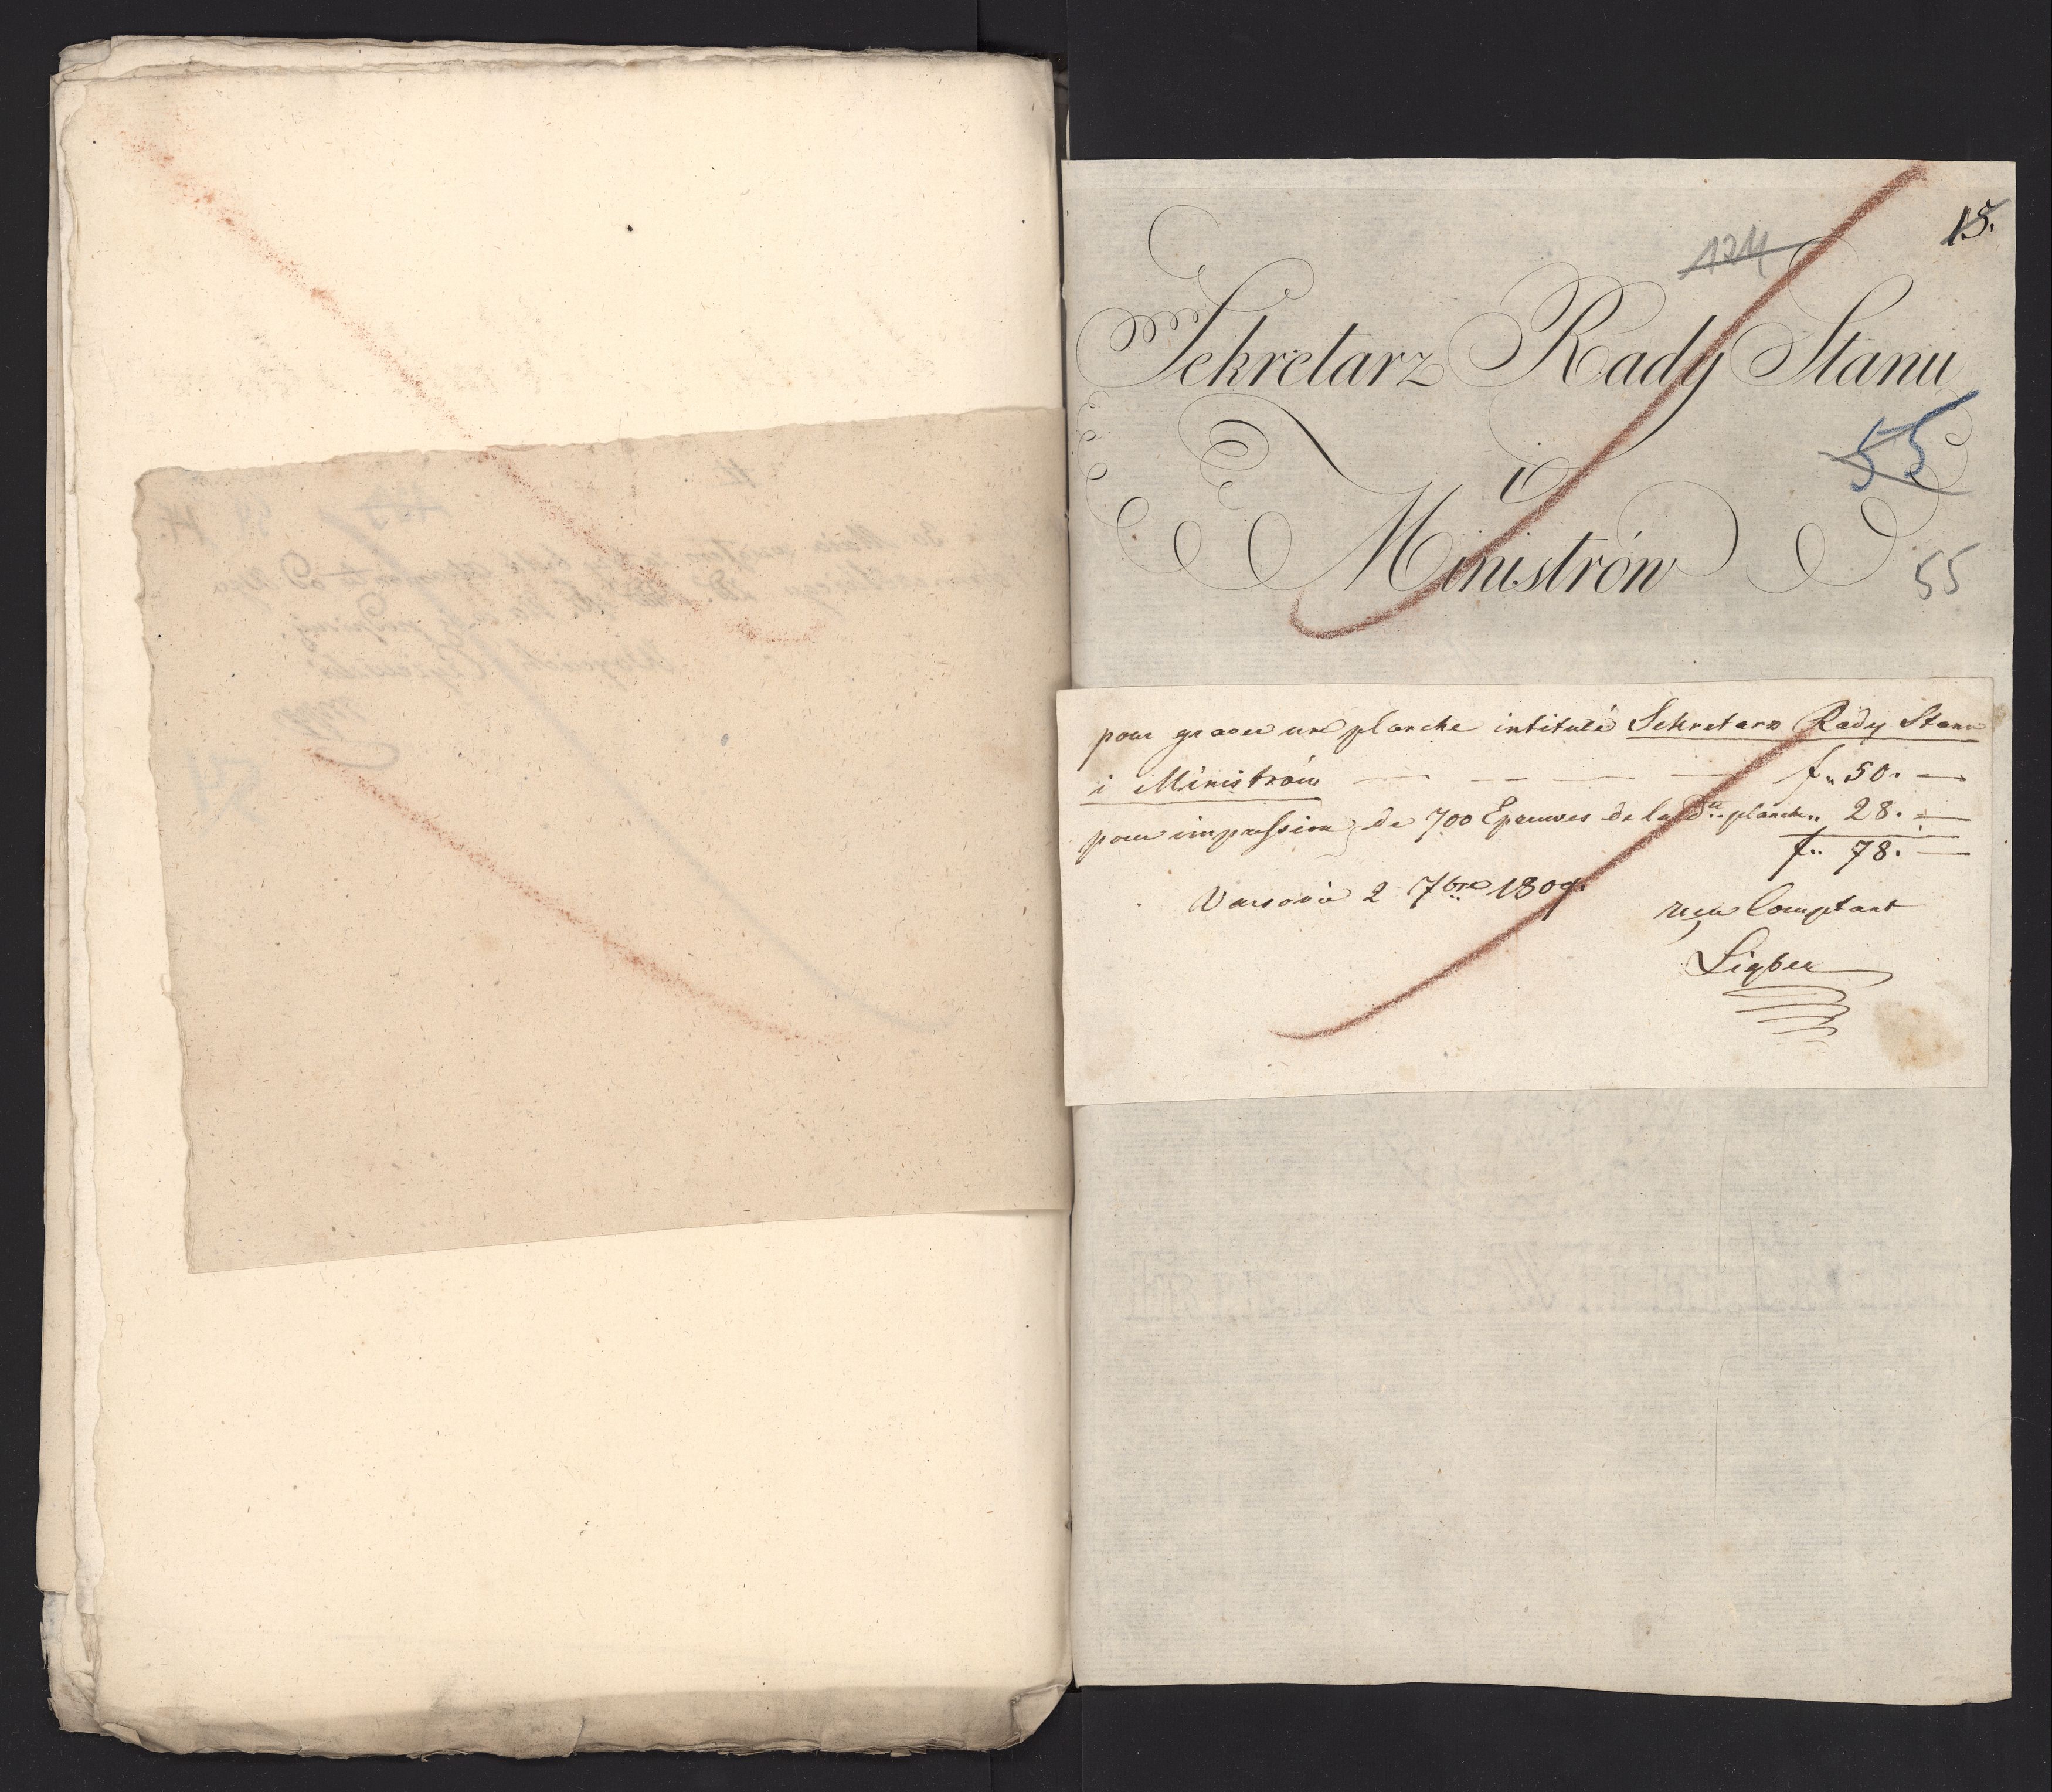 15.
124
Sekretarz Rady Stanu
55
i
Ministrów
55
pour graver une planche intitulé Sekretarz Rady Stanu
i Ministrów — — — — f" 50. —
pour impression de 700 Epreuves de la dte planche" 28. —
f" 78. —
Varsovie 2 7bre 1809.
reçu Comptant
Ligber